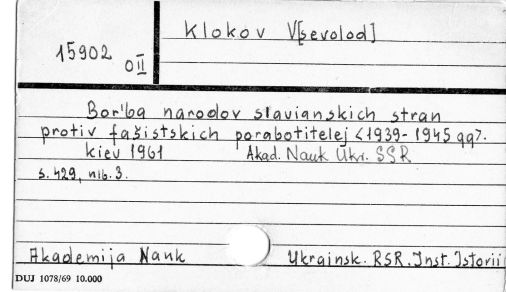 Klokov V[sevolod]
15902
OII
Bor'ba narodov slavianskich stran
protiv fašistskich porabotitelej <1939-1945 gg>.
kiev 1961 Akad. Nauk Ukr. SSR
s. 429, nlb. 3.
Akademija Nauk Ukrainsk. RSR. Inst. Istorii
DUJ 1078/69 10.000